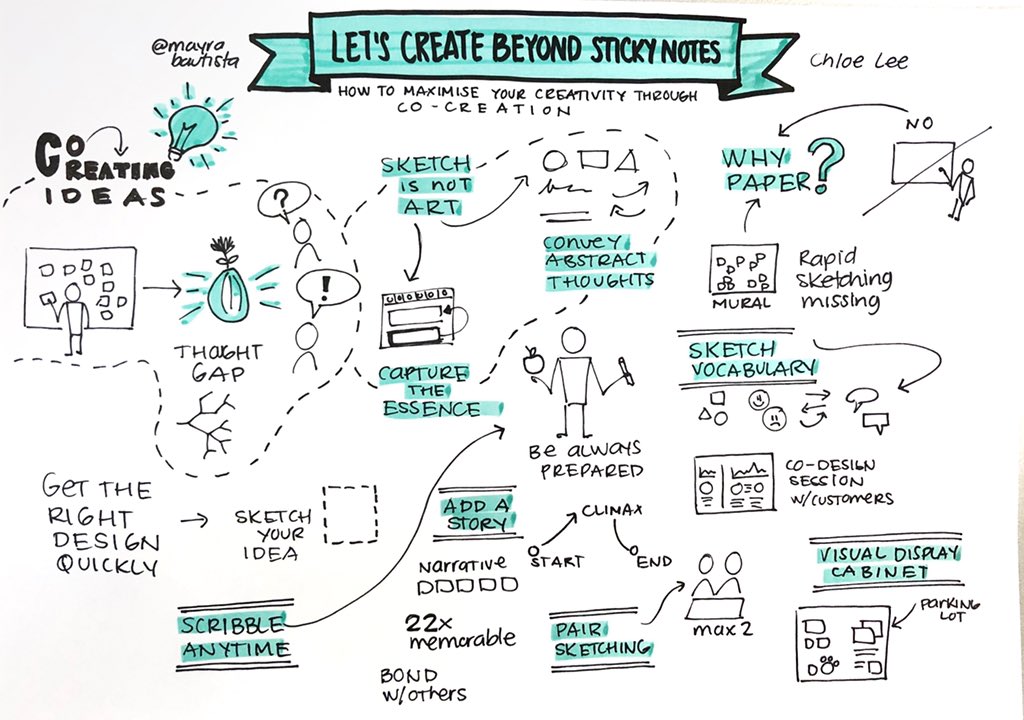 @mayra
bautista
LET'S CREATE BEYOND STICKY NOTES
Chloe Lee
HOW TO MAXIMISE YOUR CREATIVITY THROUGH
CO-CREATION
CO
CREATING
IDEAS
?
!
THOUGHT
GAP
SKETCH
IS NOT
ART
CONVEY
ABSTRACT
THOUGHTS
CAPTURE
THE
ESSENCE
WHY
PAPER?
NO
MURAL
Rapid
sketching
missing
SKETCH
VOCABULARY
BE ALWAYS
PREPARED
CO-DESIGN
SESSION
W/CUSTOMERS
GET THE
RIGHT
DESIGN
QUICKLY
SKETCH
YOUR
IDEA
ADD A
STORY
CLIMAX
START
END
Narrative
22x
memorable
BOND
W/others
SCRIBBLE
ANYTIME
PAIR
SKETCHING
max 2
VISUAL DISPLAY
CABINET
PARKING
LOT